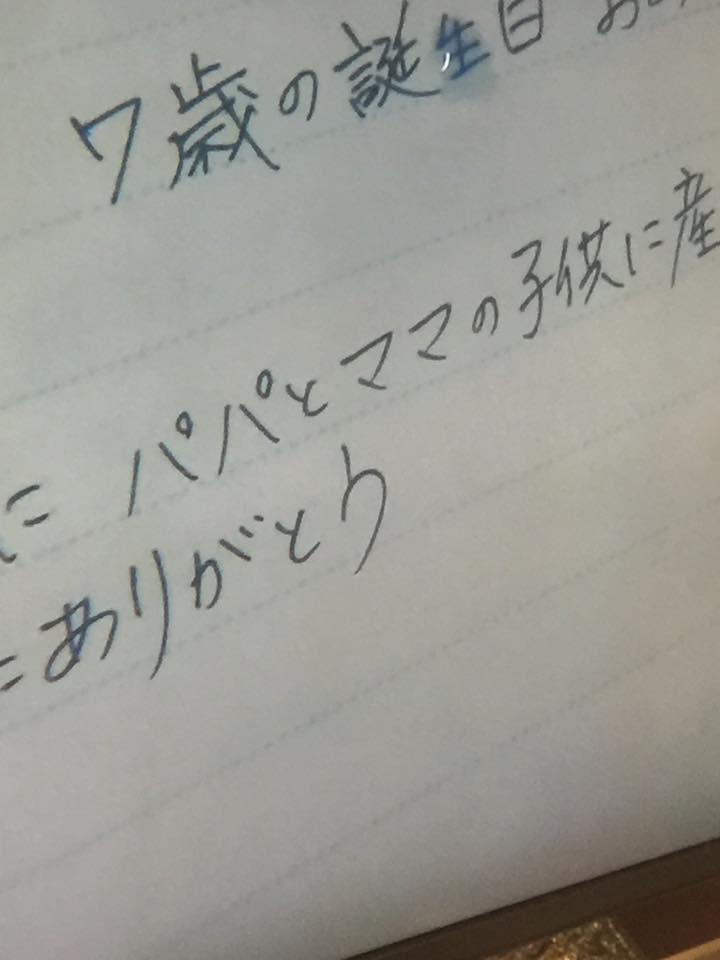 7歳の誕生日 お
に パパとママの子供に産
にありがとう